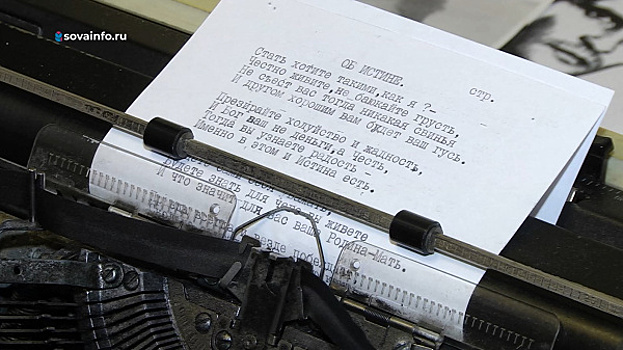 sovainfo.ru
ОБ ИСТИНЕ.
стр.
Стать хотите такими,как я ?-
Честно живите,не баюкайте грусть,
Не съест вас тогда никакая свинья
И другом хорошим вам будет ваш гусь.
Презирайте холуйство и жадность,
И Бог ваш не деньги,а честь,
Тогда вы узнаете радость -
Именно в этом и Истина есть.
знать для чего вы живете
И что значит для вас ваша Родина-Мать.